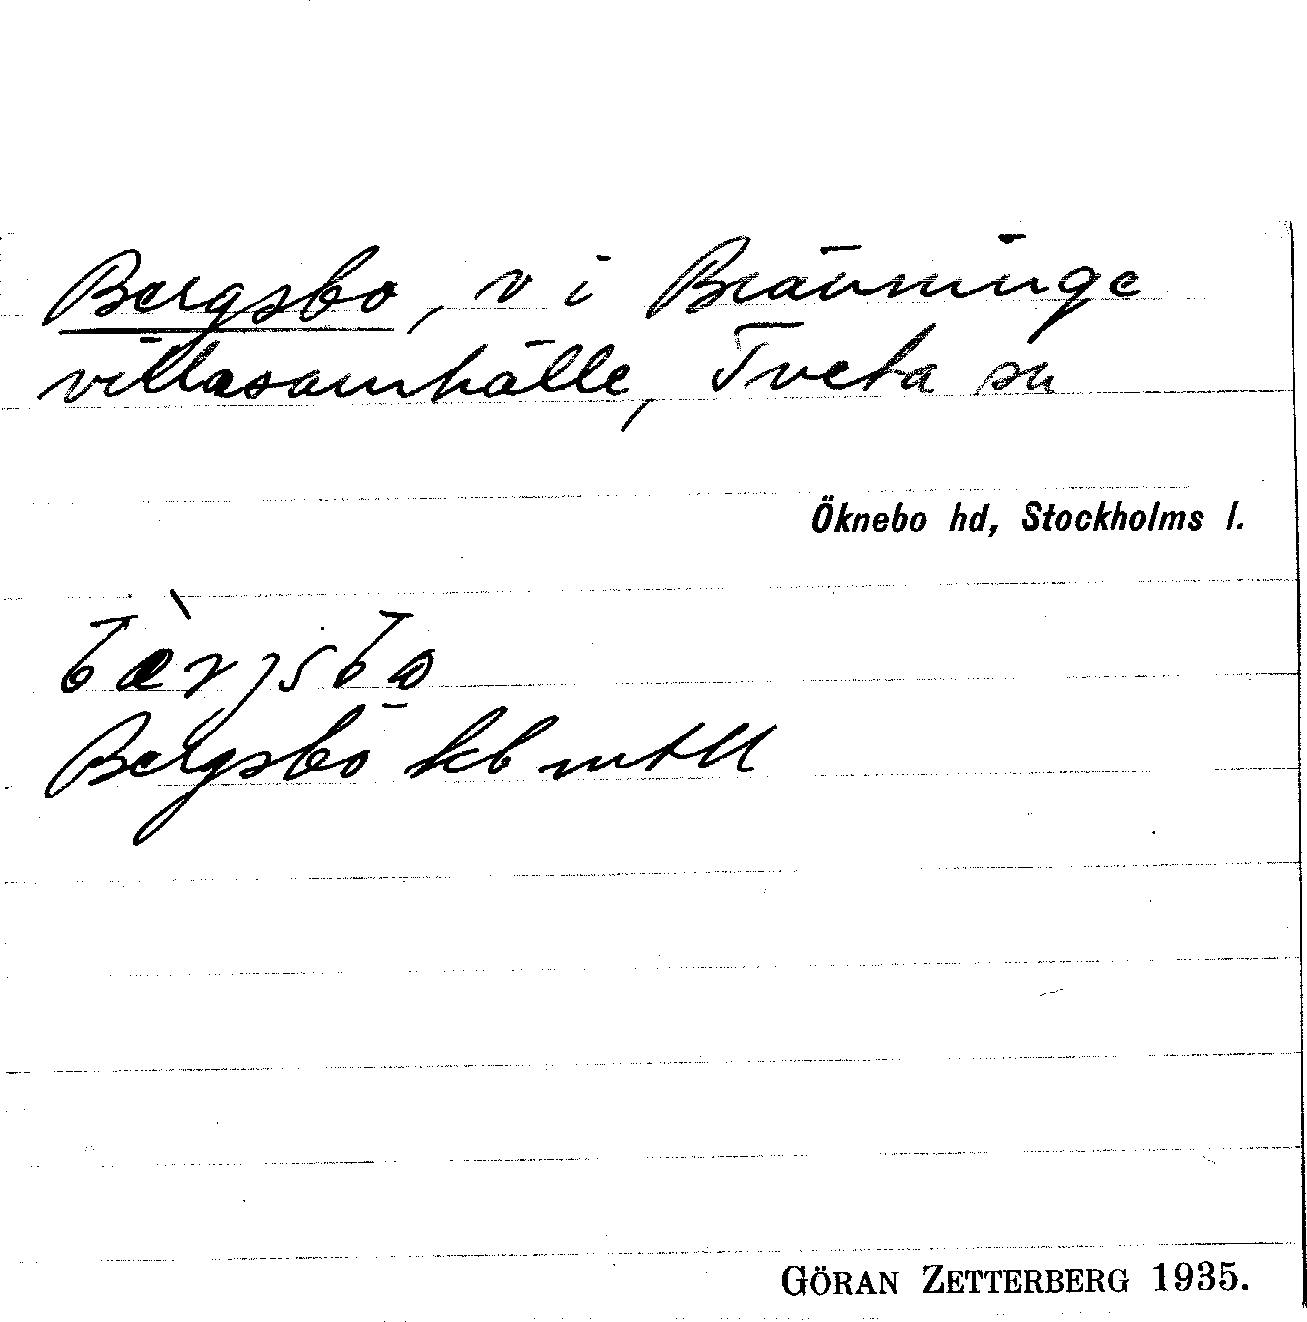 Bergsbo, v i Bränninge
villasamhälle, Tveta sn
Öknebo hd, Stockholms l.
bær̀jsbo
Bergsbo kb mtll
GÖRAN ZETTERBERG 1935.